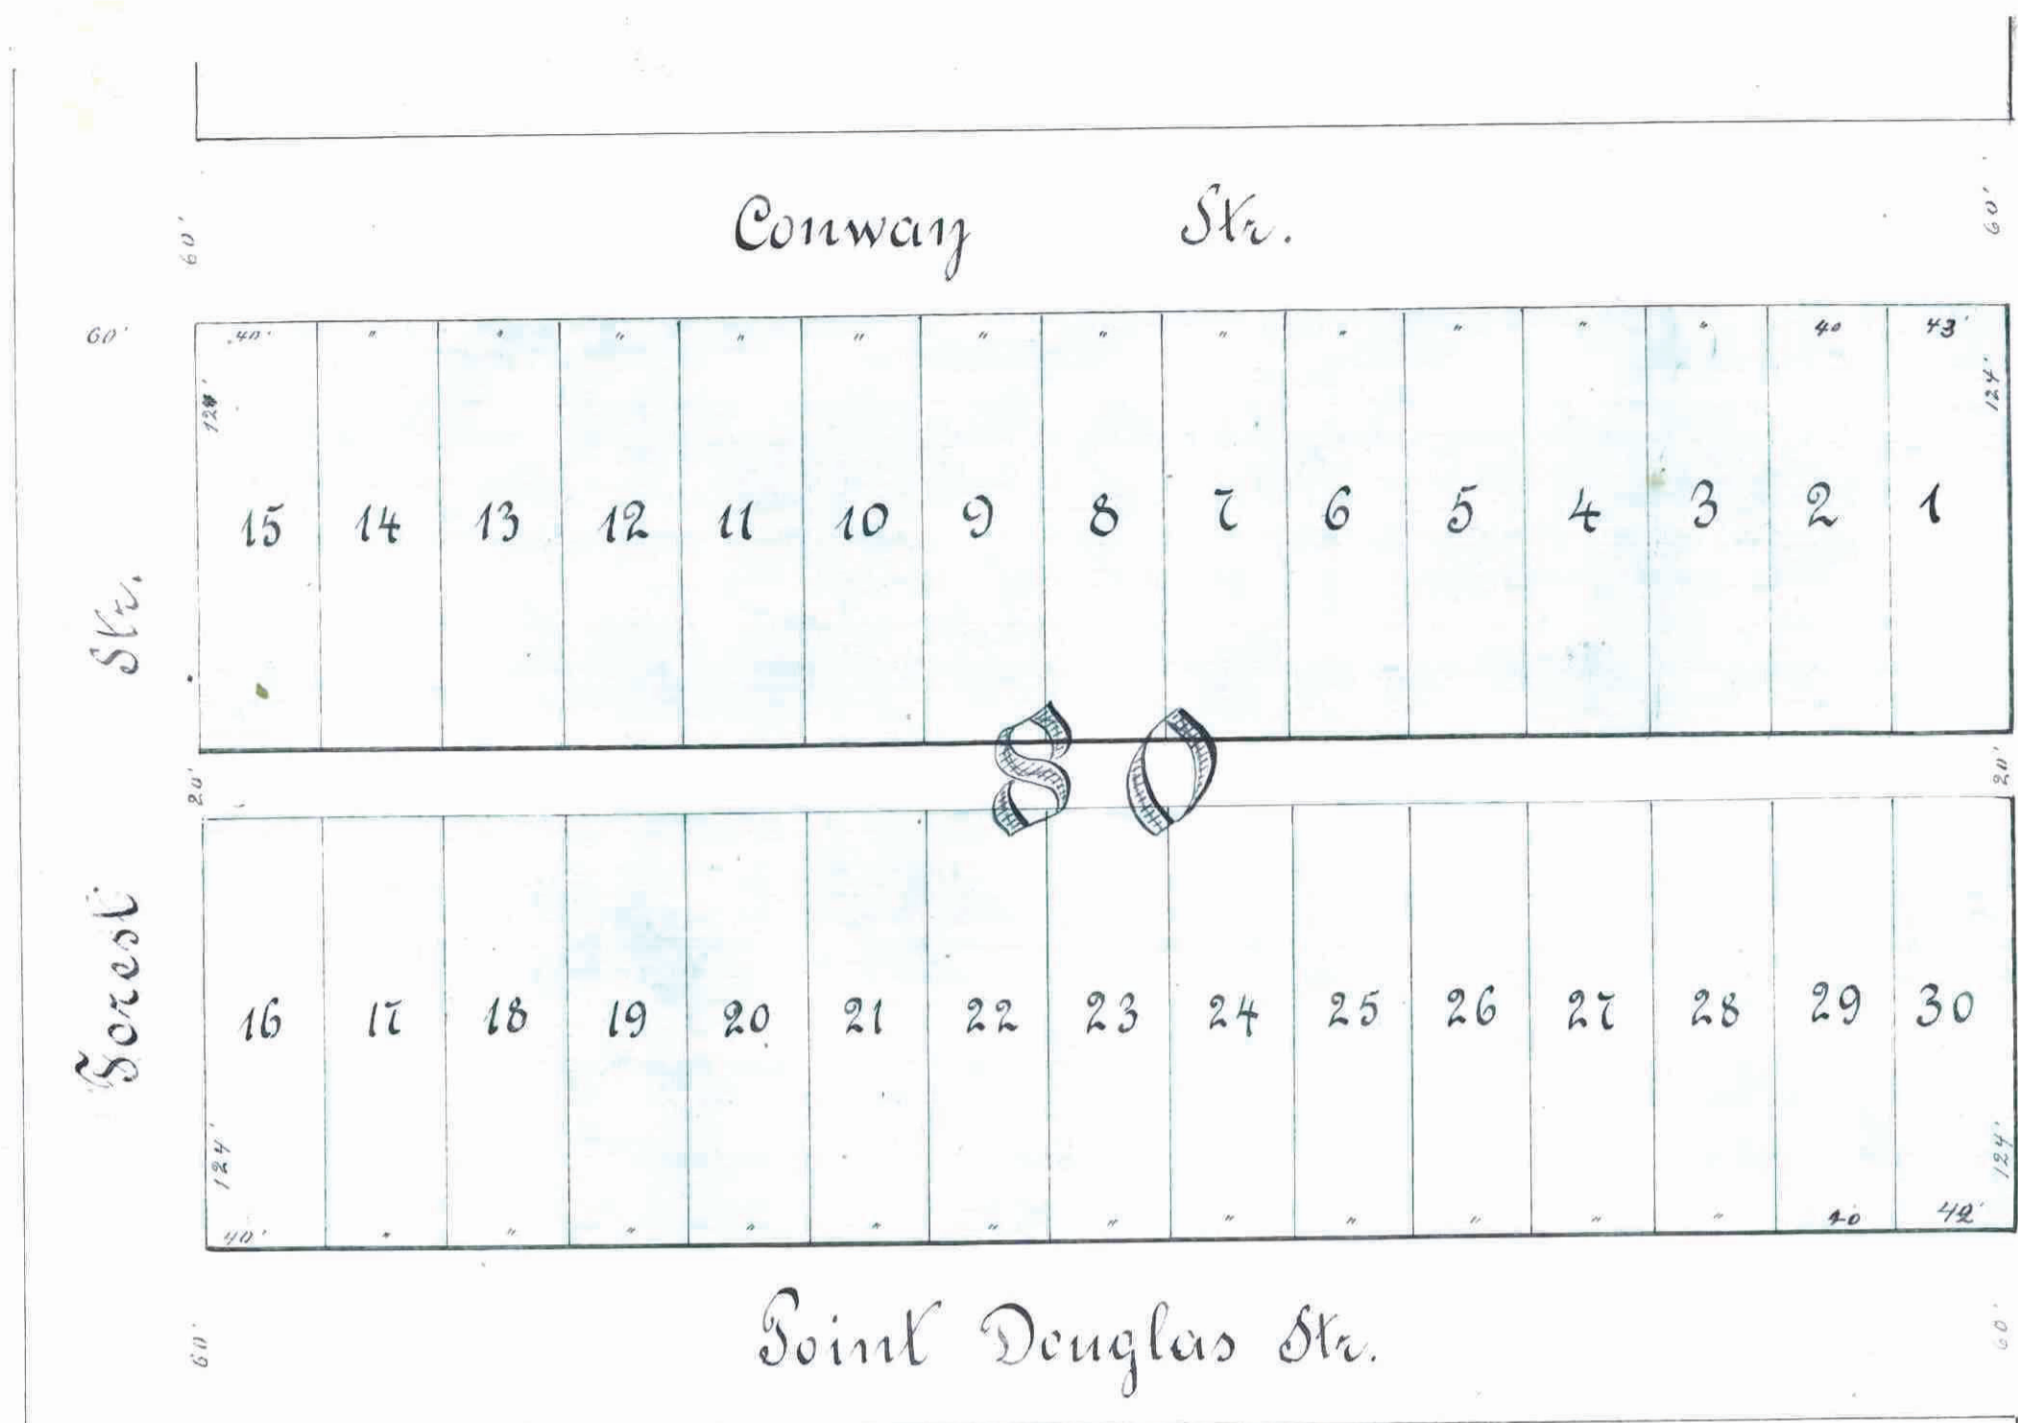 Conway Str.
60'
60'
60'
40' " " " " " " " " " " " " 40 43'
124'
124'
15 14 13 12 11 10 9 8 7 6 5 4 3 2 1
Forest Str.
20'
80
20'
16 17 18 19 20 21 22 23 24 25 26 27 28 29 30
124'
124'
40' " " " " " " " " " " " " 40 42'
60'
Point Douglas Str.
60'